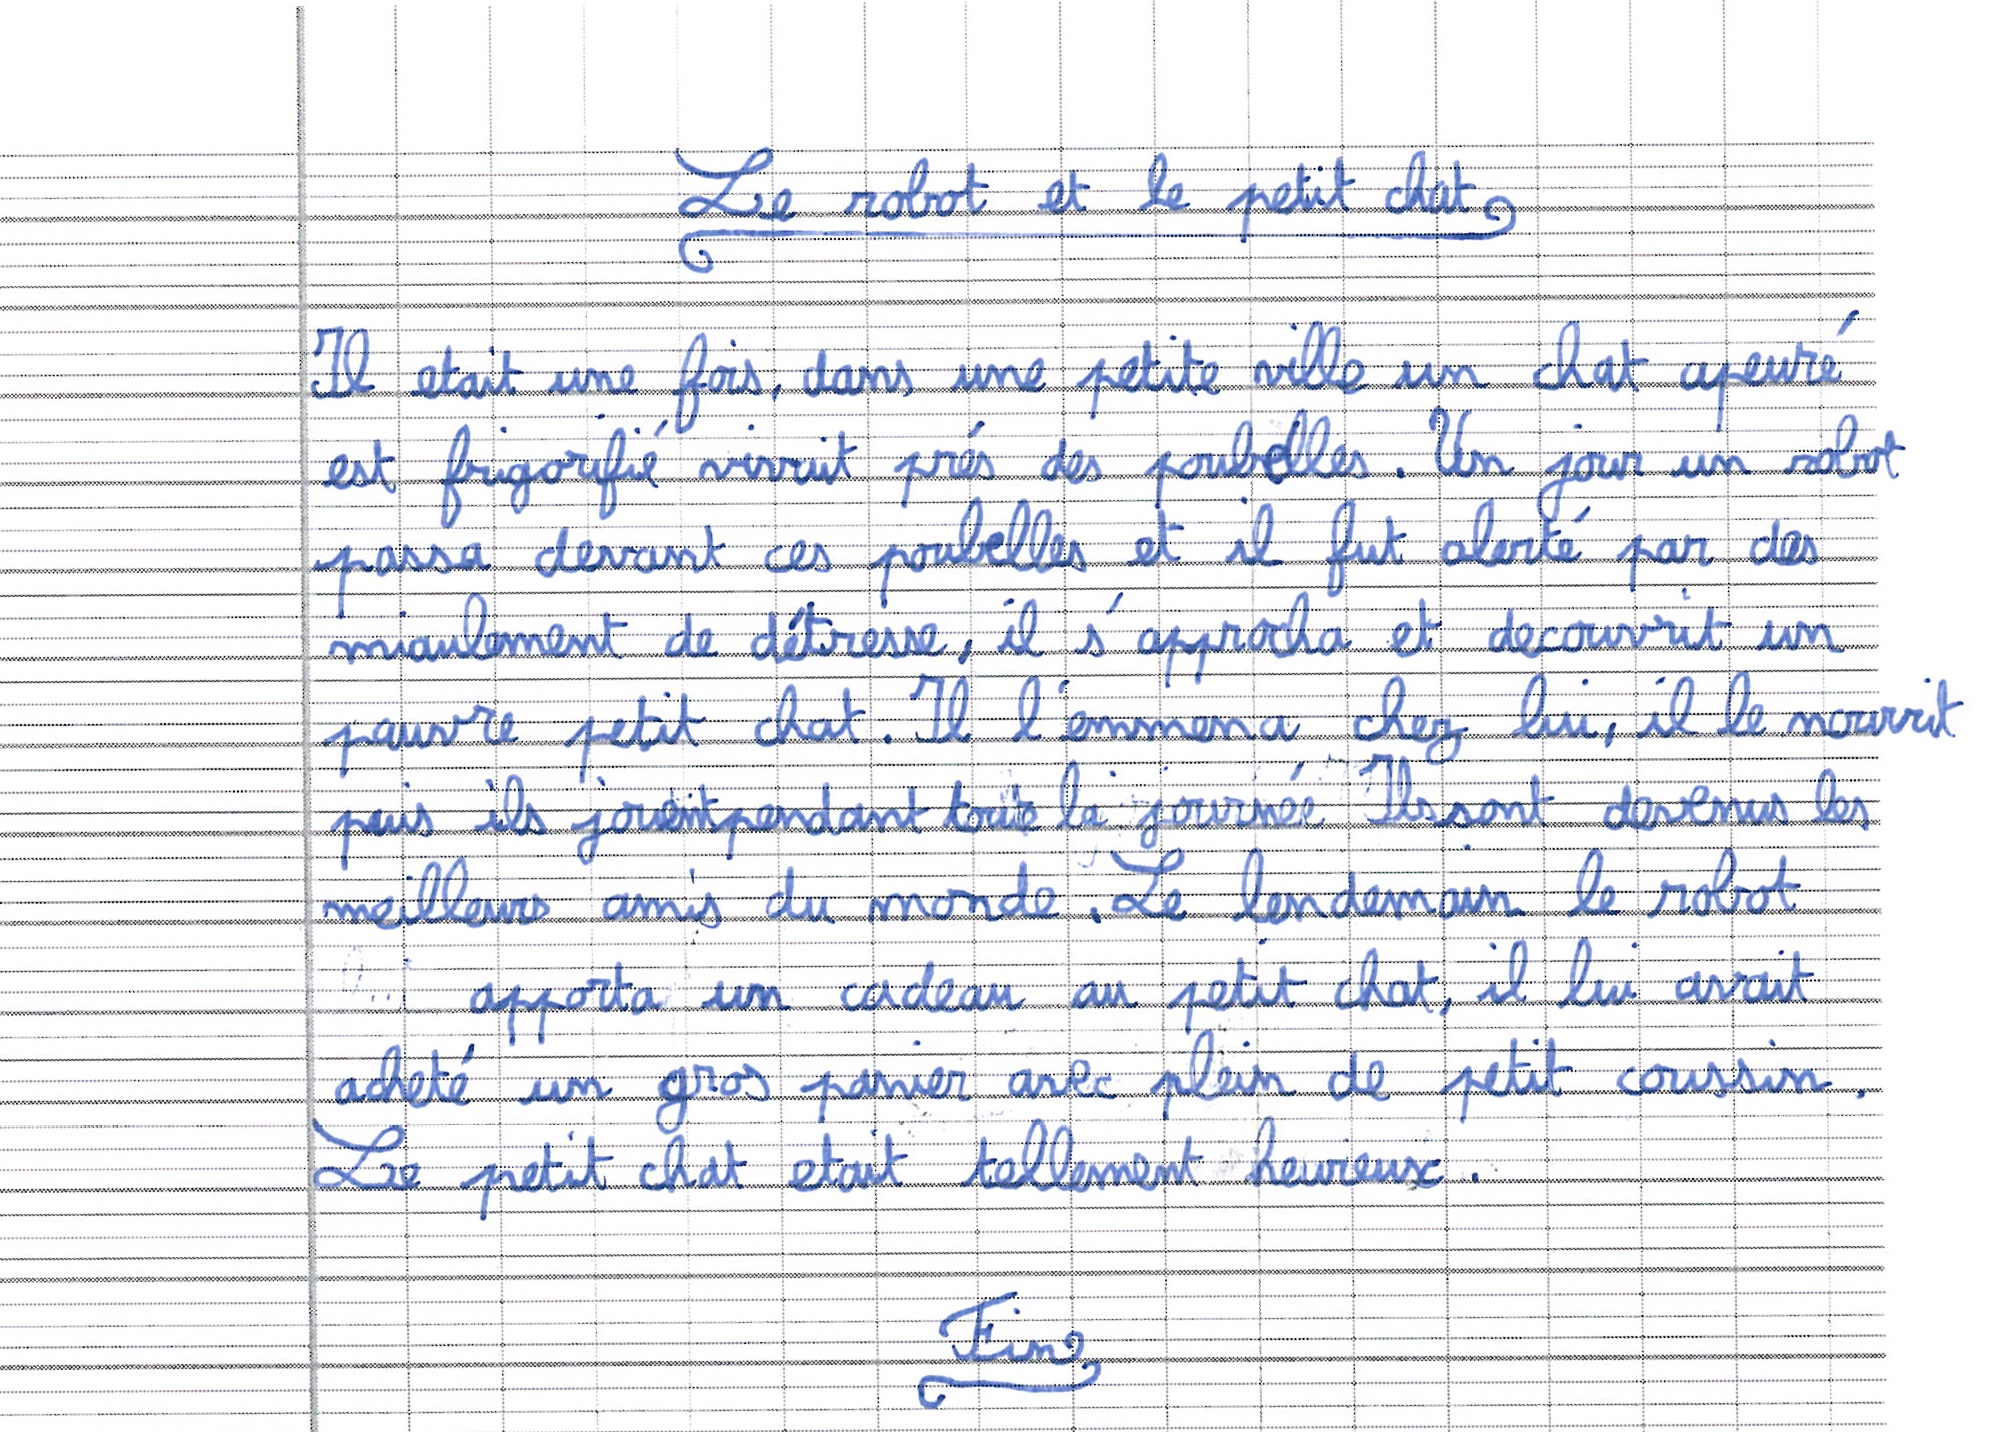 Le robot et le petit chat
Il etait une fois, dans une petite ville un chat apeuré
est frigorifié vivait prés des poubelles. Un jour un robot
passa devant ces poubelles et il fut alerté par des
miaulement de détresse, il s'approcha et decouvrit un
pauvre petit chat. Il l'emmena chez lui, il le nourrit
puis ils jouent pendant toute la journée Ils sont devenus les
meilleurs amis du monde. Le lendemain le robot
apporta un cadeau au petit chat, il lui avait
acheté un gros panier avec plein de petit coussin.
Le petit chat etait tellement heureux.
Fin